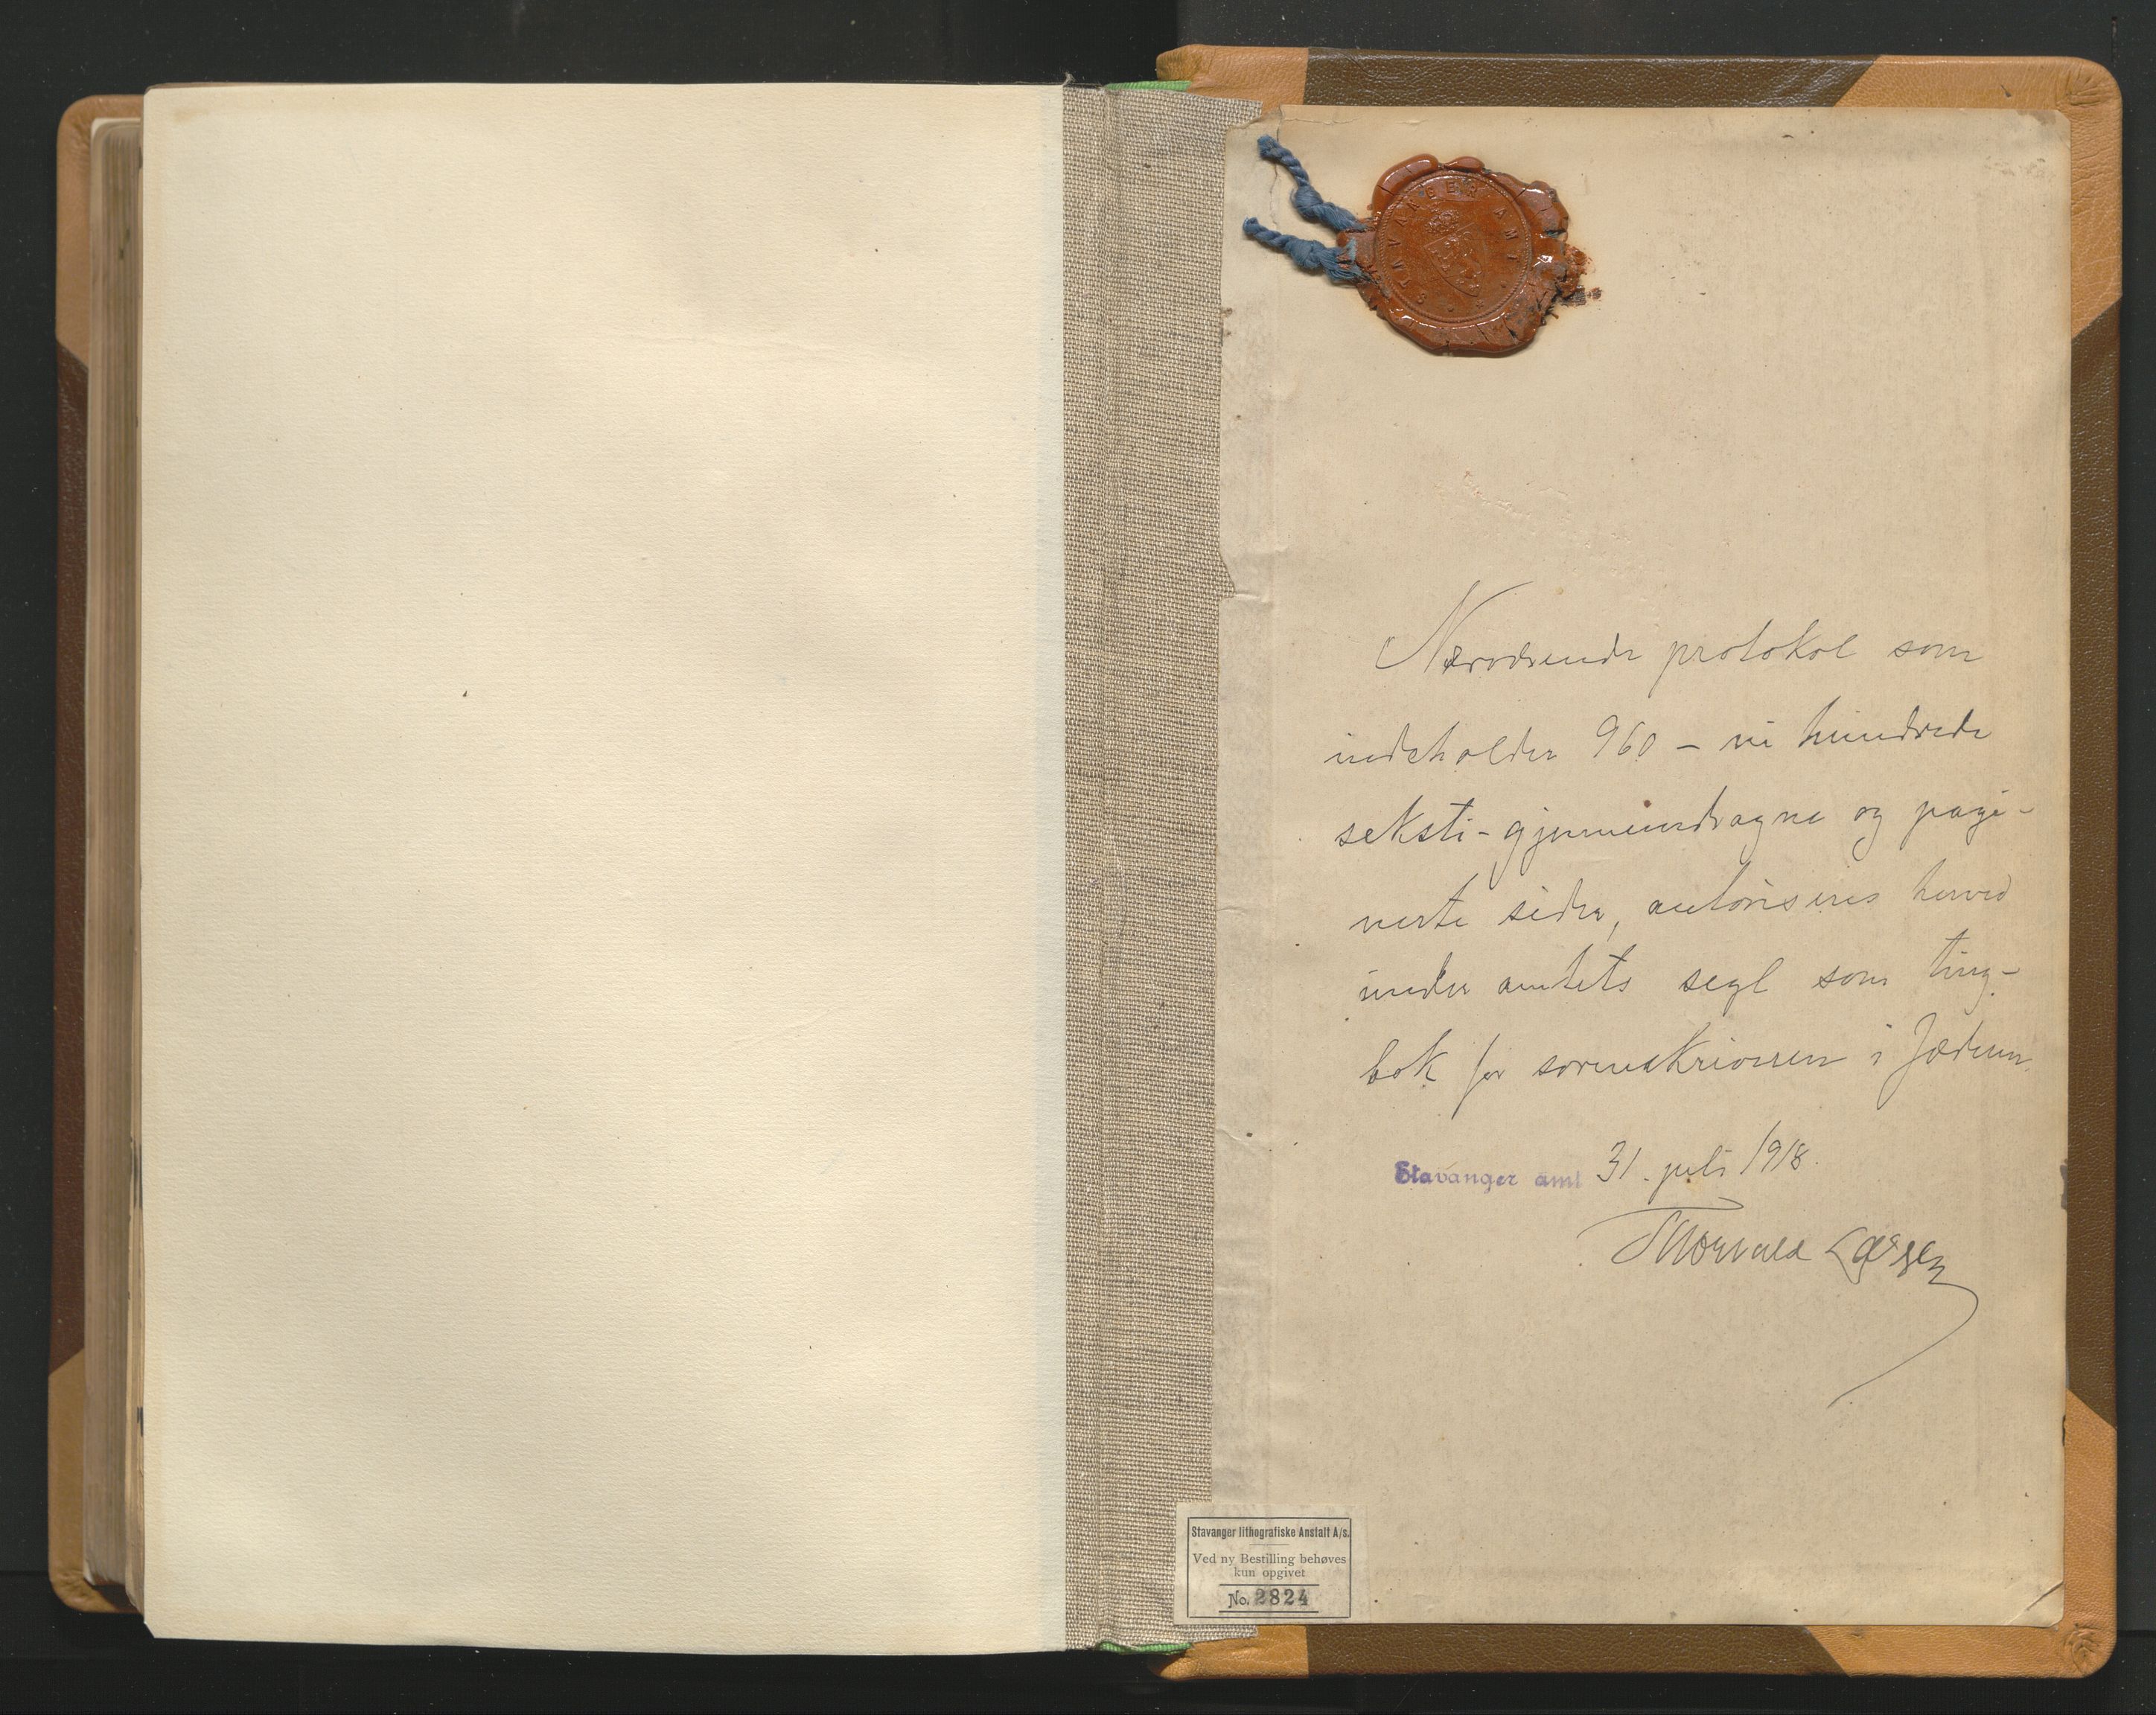 STAVANGER AMT
Nærværende protokol som
indeholder 960 – ni hundrede
seksti – gjennemdragne og pagi-
nerte sider, autoriseres herved
under amtets segl som ting-
bok for sorenskriveren i Jæderen.
Stavanger amt 31. juli 1918.
Thorvald Larsen
Stavanger lithografiske Anstalt A/s.
Ved ny Bestilling behøves
kun opgivet
No. 2824